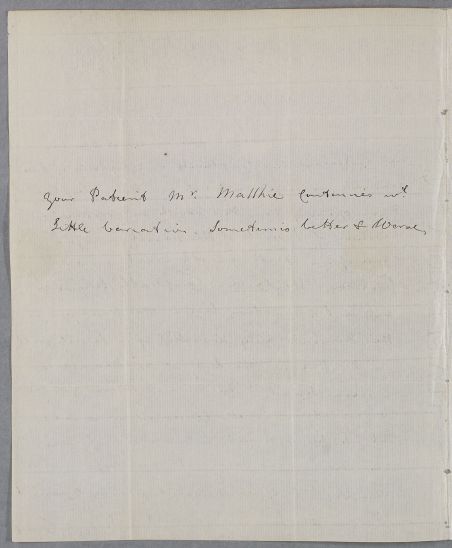 Your Patient Mr Matthie Continues wt
Little Variation. Sometimes better & Worse,